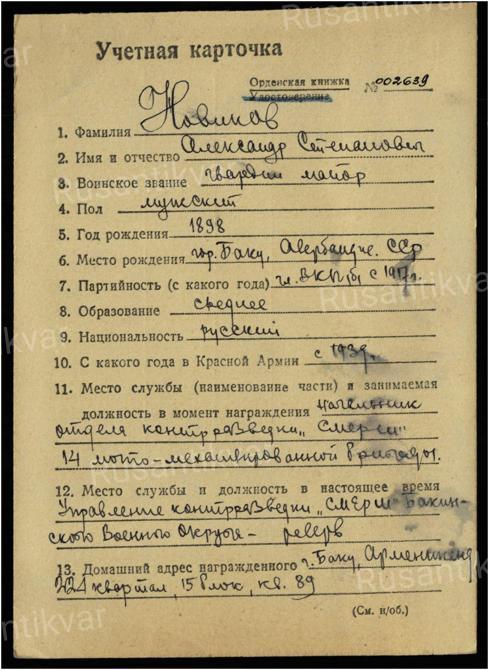 Учетная карточка
Орденская книжка
Удостоверение
№ 002639
1. Фамилия Новиков
2. Имя и отчество Александр Степанович
3. Воинское звание гвардии майор
4. Пол мужской
5. Год рождения 1898
6. Место рождения гор. Баку, Азербайдж. ССР
7. Партийность (с какого года) чл. ВКП(б) с 1917 г.
8. Образование среднее
9. Национальность русский
10. С какого года в Красной Армии с 1939.
11. Место службы (наименование части) и занимаемая
должность в момент награждения Начальник
отдела контрразведки „Смерш"
14 мото-механизированной бригады.
12. Место службы и должность в настоящее время
Управление контрразведки „СМЕРШ" Бакин-
ского Военного Округа – резерв
13. Домашний адрес награжденного г. Баку, Арменикенд
224 квартал, 15 блок, кв. 89
(См. н/об.)
Rusantikvar
Rusantikvar
Rusantikvar
Rusantikvar
Rusantikvar